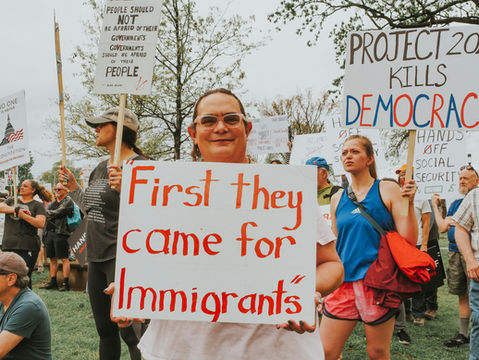 PEOPLE SHOULD
NOT
BE AFRAID OF THEIR
GOVERNMENTS
GOVERNMENTS
SHOULD BE AFRAID
OF THEIR
PEOPLE
PROJECT 20
KILLS
DEMOCRAC
HANDS
OFF
SOCIAL
SECURITY
NO ONE
First they
came for
Immigrants"